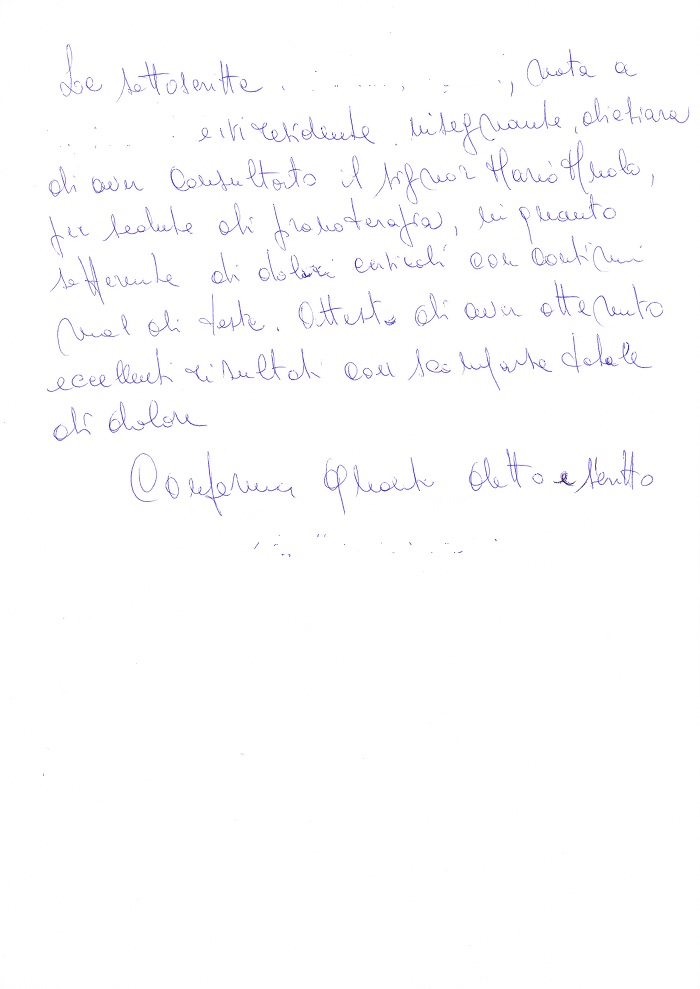 La sottoscritta , nata a
e ivi residente insegnante, dichiara
di aver consultato il signor Mario
per sedute di pranoterapia, in quanto
sofferente di dolori cervicali con continui
mal di testa. Attesto di aver ottenuto
eccellenti risultati con scomparsa totale
di dolore
Conferma quanto detto e scritto